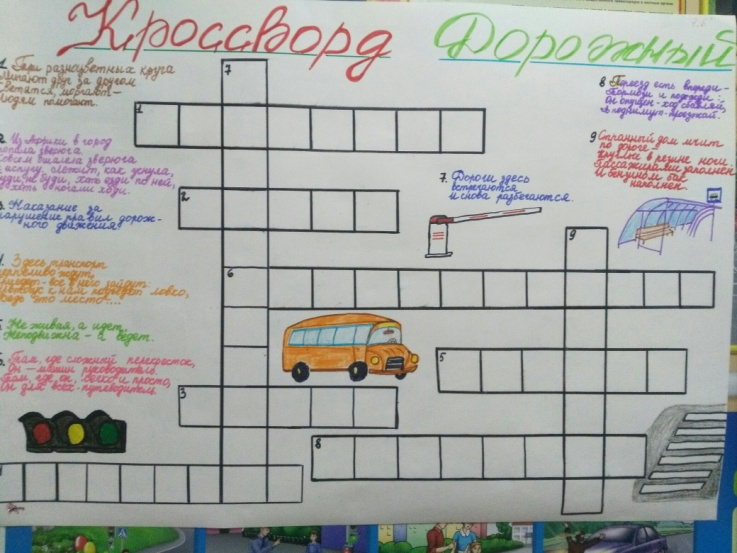 Кроссворд Дорожный
1. Три разноцветных круга
мигают друг за другом
Светятся, моргают –
Людям помогают.
2. Из Африки в город
попала зверюга
Совсем ошалела зверюга
с испугу. Лежит, как уснула,
буди, не буди, хоть езди по ней,
хоть ногами ходи.
3. Наказание за
нарушение правил дорож-
ного движения
4. Здесь транспорт
терпеливо ждут,
Приедет - все в него зайдут
ловко,
Ведь это место-...
5. Не живая, а идет,
Неподвижна - а ведет.
6. Там, где сложный перекресток,
Он – машин руководитель.
Там, где он, легко и просто,
Он для всех - путеводитель.
7. Дороги здесь
встречаются
и снова разбегаются.
8 Переезд есть впереди –
Тормози и подожди:
Он опущен - ход сбавляй,
А поднимут - проезжай.
9 Странный дом мчит
по дороге -
Круглые в резине ноги
Пассажирами заполнен
И бензином бак
наполнен.
7
1
2
9
6
5
3
8